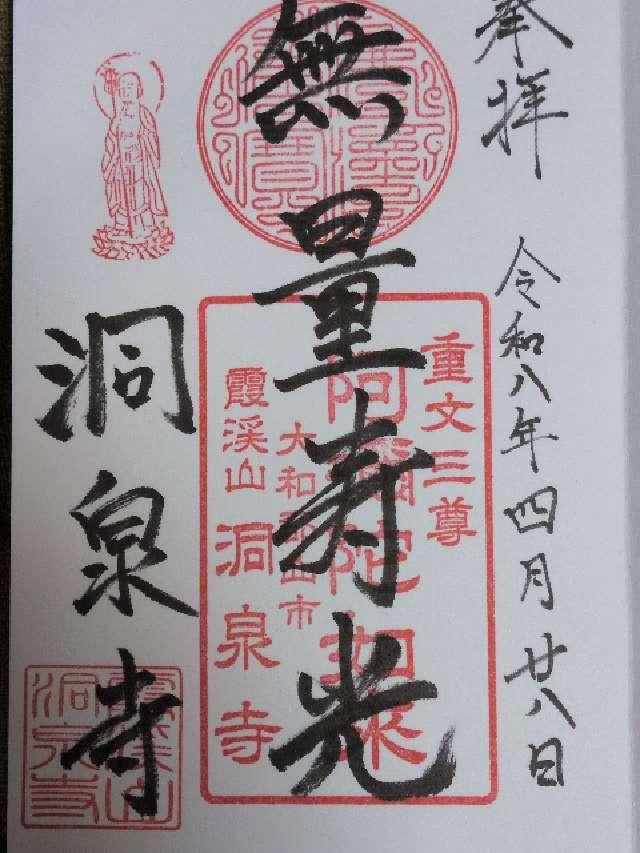 奉拝
令和八年四月廿八日
無量寿光
重文三尊
阿彌陀如来
大和郡山市
霞渓山 洞泉寺
洞泉寺
霞渓山
洞泉寺